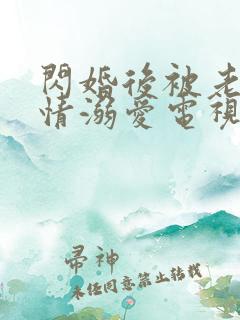 閃婚後被老
情溺愛電視
帚神
未经同意禁止转载